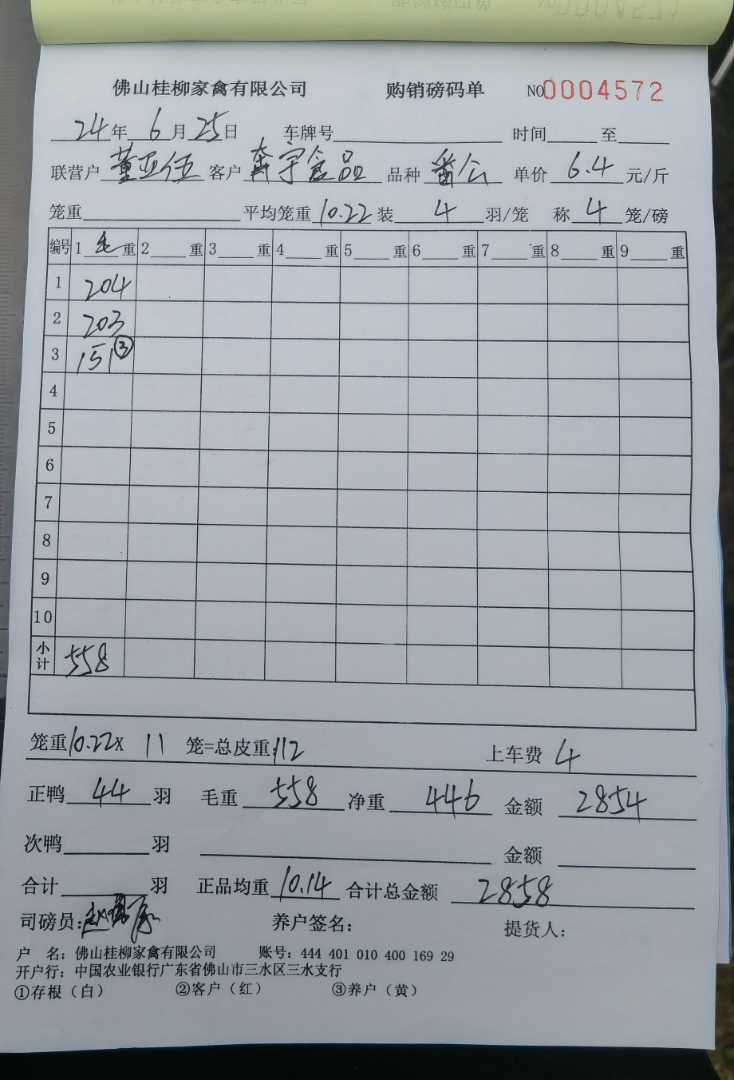 佛山桂柳家禽有限公司 购销磅码单 NO0004572
24年6月25日 车牌号 时间 至
联营户 董亚伍 客户 奔宇食品 品种 番公 单价 6.4 元/斤
笼重 平均笼重 10.22 装 4 羽/笼 称 4 笼/磅
编号 1 毛 重 2 重 3 重 4 重 5 重 6 重 7 重 8 重 9 重
1 204
2 203
3 151 ③
4
5
6
7
8
9
10
小计 558
笼重 10.22× 11 笼=总皮重: 112 上车费 4
正鸭 44 羽 毛重 558 净重 446 金额 2854
次鸭 羽 金额
合计 羽 正品均重 10.14 合计总金额 2858
司磅员: 养户签名: 提货人:
户 名: 佛山桂柳家禽有限公司 账号: 444 401 010 400 169 29
开户行: 中国农业银行广东省佛山市三水区三水支行
①存根（白） ②客户（红） ③养户（黄）